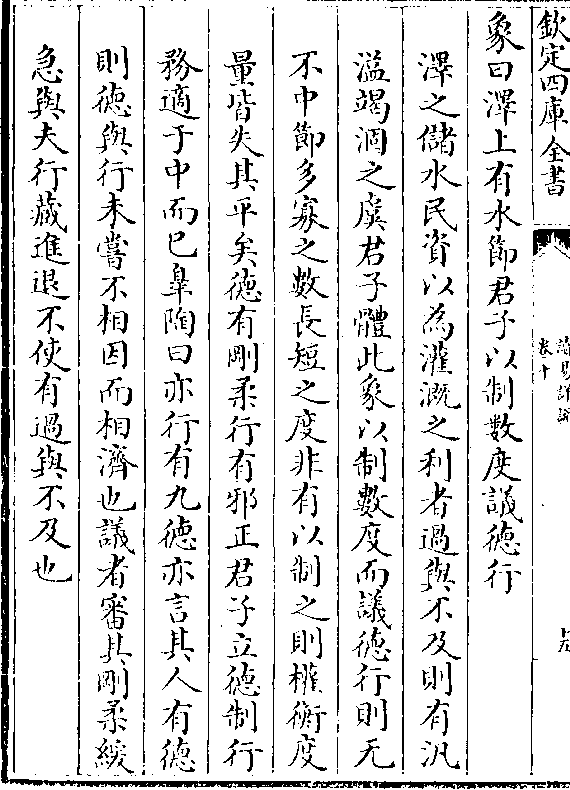 欽定四庫全書
讀易詳說
卷十
象曰澤上有水節君子以制數度議德行
澤之儲水民資以為灌溉之利者過與不及則有汎
溢竭涸之虞君子體此象以制數度而議德行則无
不中節多寡之數長短之度非有以制之則權衡度
量皆失其平矣德有剛柔行有邪正君子立德制行
務適于中而已臯陶曰亦行有九德亦言其人有德
則德與行未嘗不相因而相濟也議者審其剛柔緩
急與夫行藏進退不使有過與不及也